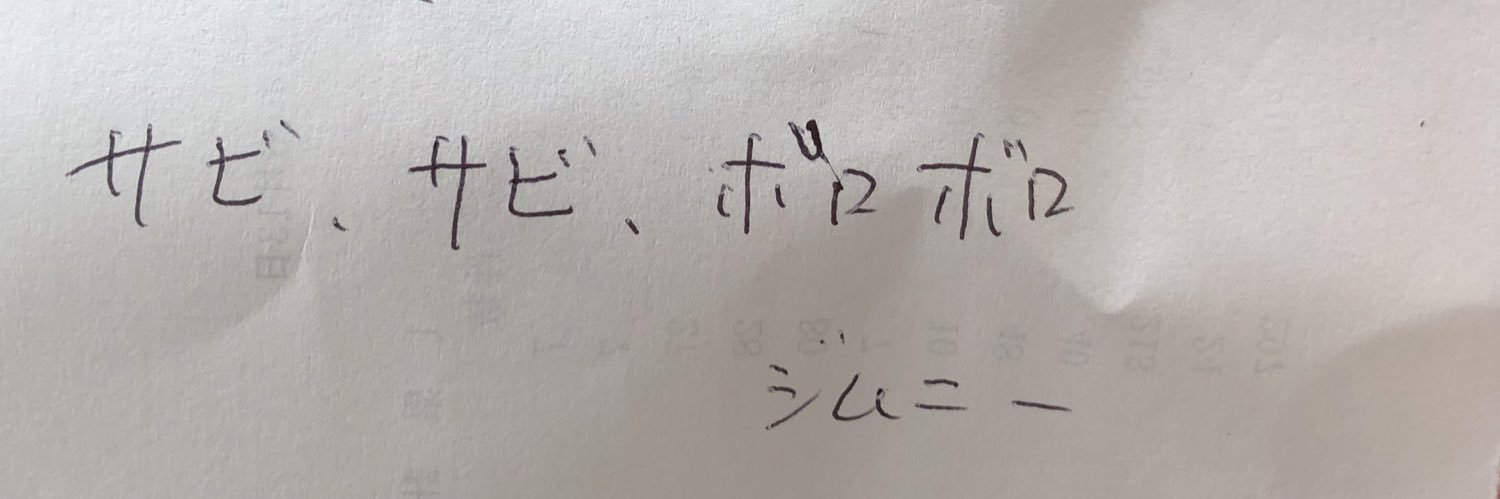 サビ、サビ、ボロボロ
ジムニー